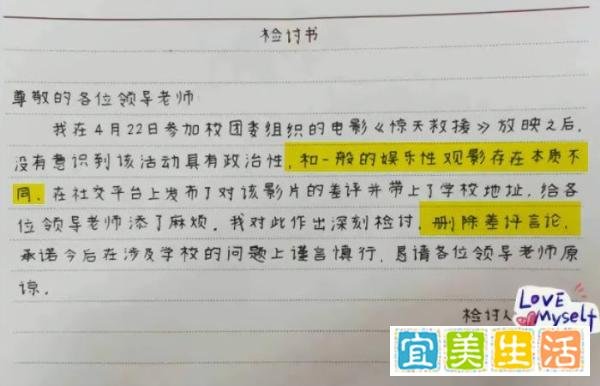 检讨书
尊敬的各位领导老师
我在4月22日参加校团委组织的电影《惊天救援》放映之后,
没有意识到该活动具有政治性,和一般的娱乐性观影存在本质不
同,在社交平台上发布了对该影片的差评并带上了学校地址,给各
位领导老师添了麻烦。我对此作出深刻检讨,删除差评言论,
承诺今后在涉及学校的问题上谨言慎行,恳请各位领导老师原
谅。
检讨人
LOVE
Myself
宜美生活